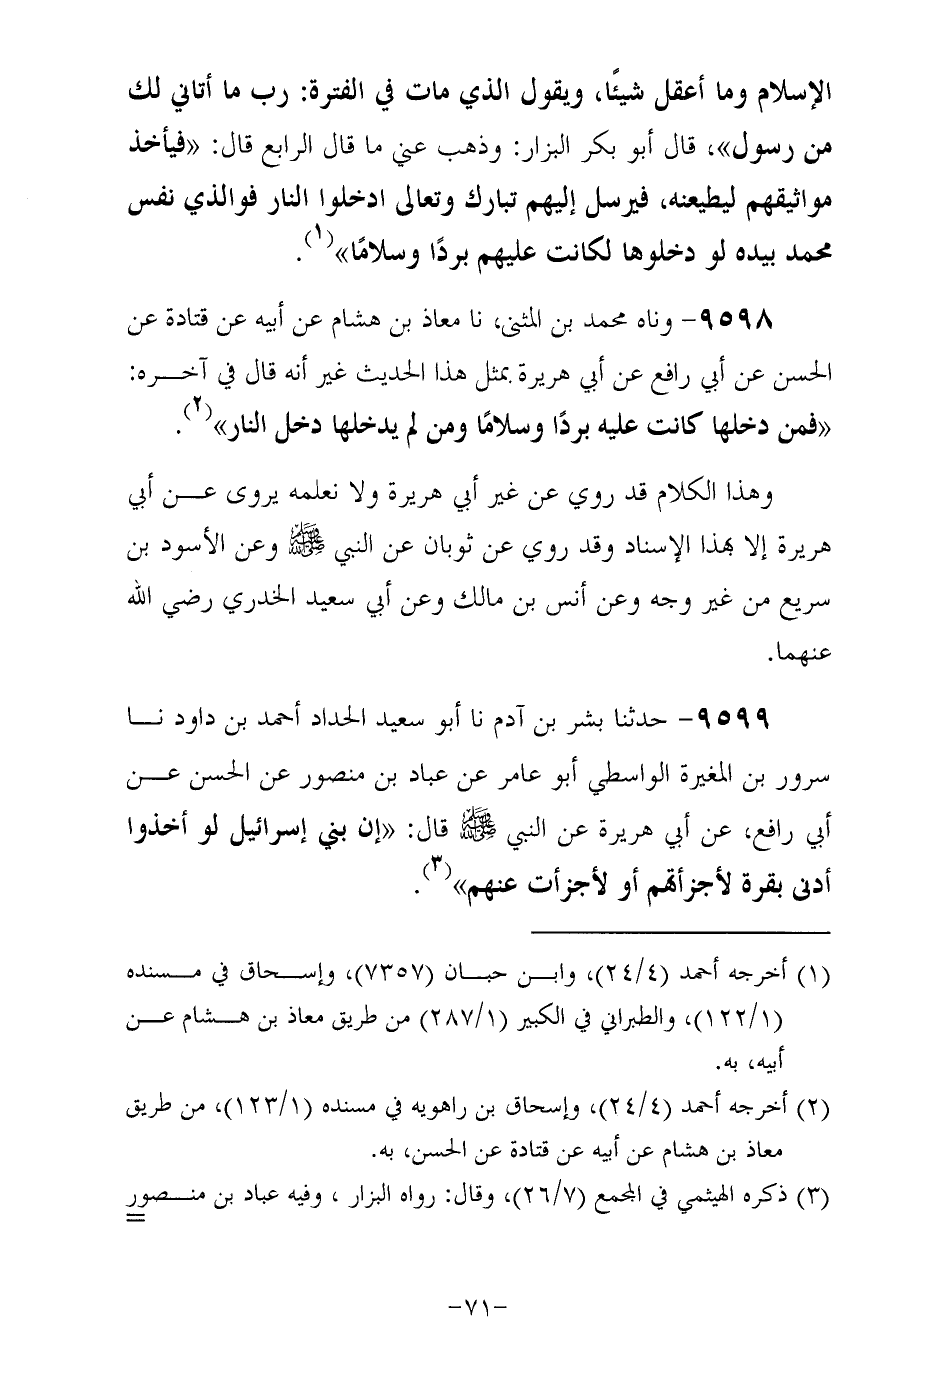 الإسلام وما أعقل شيئًا، ويقول الذي مات في الفترة: رب ما أتاني لك
من رسول»، قال أبو بكر البزار: وذهب عني ما قال الرابع قال: «فيأخذ
مواثيقهم ليطيعنه، فيرسل إليهم تبارك وتعالى ادخلوا النار فوالذي نفس
محمد بيده لو دخلوها لكانت عليهم بردًا وسلامًا»(١).
٩٥٩٨- وناه محمد بن المثنى، نا معاذ بن هشام عن أبيه عن قتادة عن
الحسن عن أبي رافع عن أبي هريرة بمثل هذا الحديث غير أنه قال في آخره:
«فمن دخلها كانت عليه بردًا وسلامًا ومن لم يدخلها دخل النار»(٢).
وهذا الكلام قد روي عن غير أبي هريرة ولا نعلمه يروى عن أبي
هريرة إلا بهذا الإسناد وقد روي عن ثوبان عن النبي ﷺ وعن الأسود بن
سريع من غير وجه وعن أنس بن مالك وعن أبي سعيد الخدري رضي الله
عنهما.
٩٥٩٩- حدثنا بشر بن آدم نا أبو سعيد الحداد أحمد بن داود نا
سرور بن المغيرة الواسطي أبو عامر عن عباد بن منصور عن الحسن عن
أبي رافع، عن أبي هريرة عن النبي ﷺ قال: «إن بني إسرائيل لو أخذوا
أدنى بقرة لأجزأتهم أو لأجزأت عنهم»(٣).
(١) أخرجه أحمد (٢٤/٤)، وابن حبان (٧٣٥٧)، وإسحاق في مسنده
(١٢٢/١)، والطبراني في الكبير (٢٨٧/١) من طريق معاذ بن هشام عن
أبيه، به.
(٢) أخرجه أحمد (٢٤/٤)، وإسحاق بن راهويه في مسنده (١٢٣/١)، من طريق
معاذ بن هشام عن أبيه عن قتادة عن الحسن، به.
(٣) ذكره الهيثمي في المجمع (٢٦/٧)، وقال: رواه البزار ، وفيه عباد بن منصور
=
-٧١-